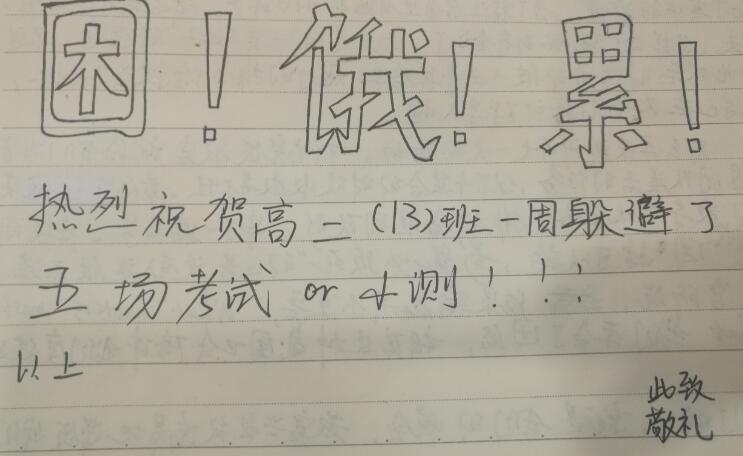 困！饿！累！
热烈祝贺高二(13)班一周躲避了
五场考试 or 小测！！！
以上
此致
敬礼